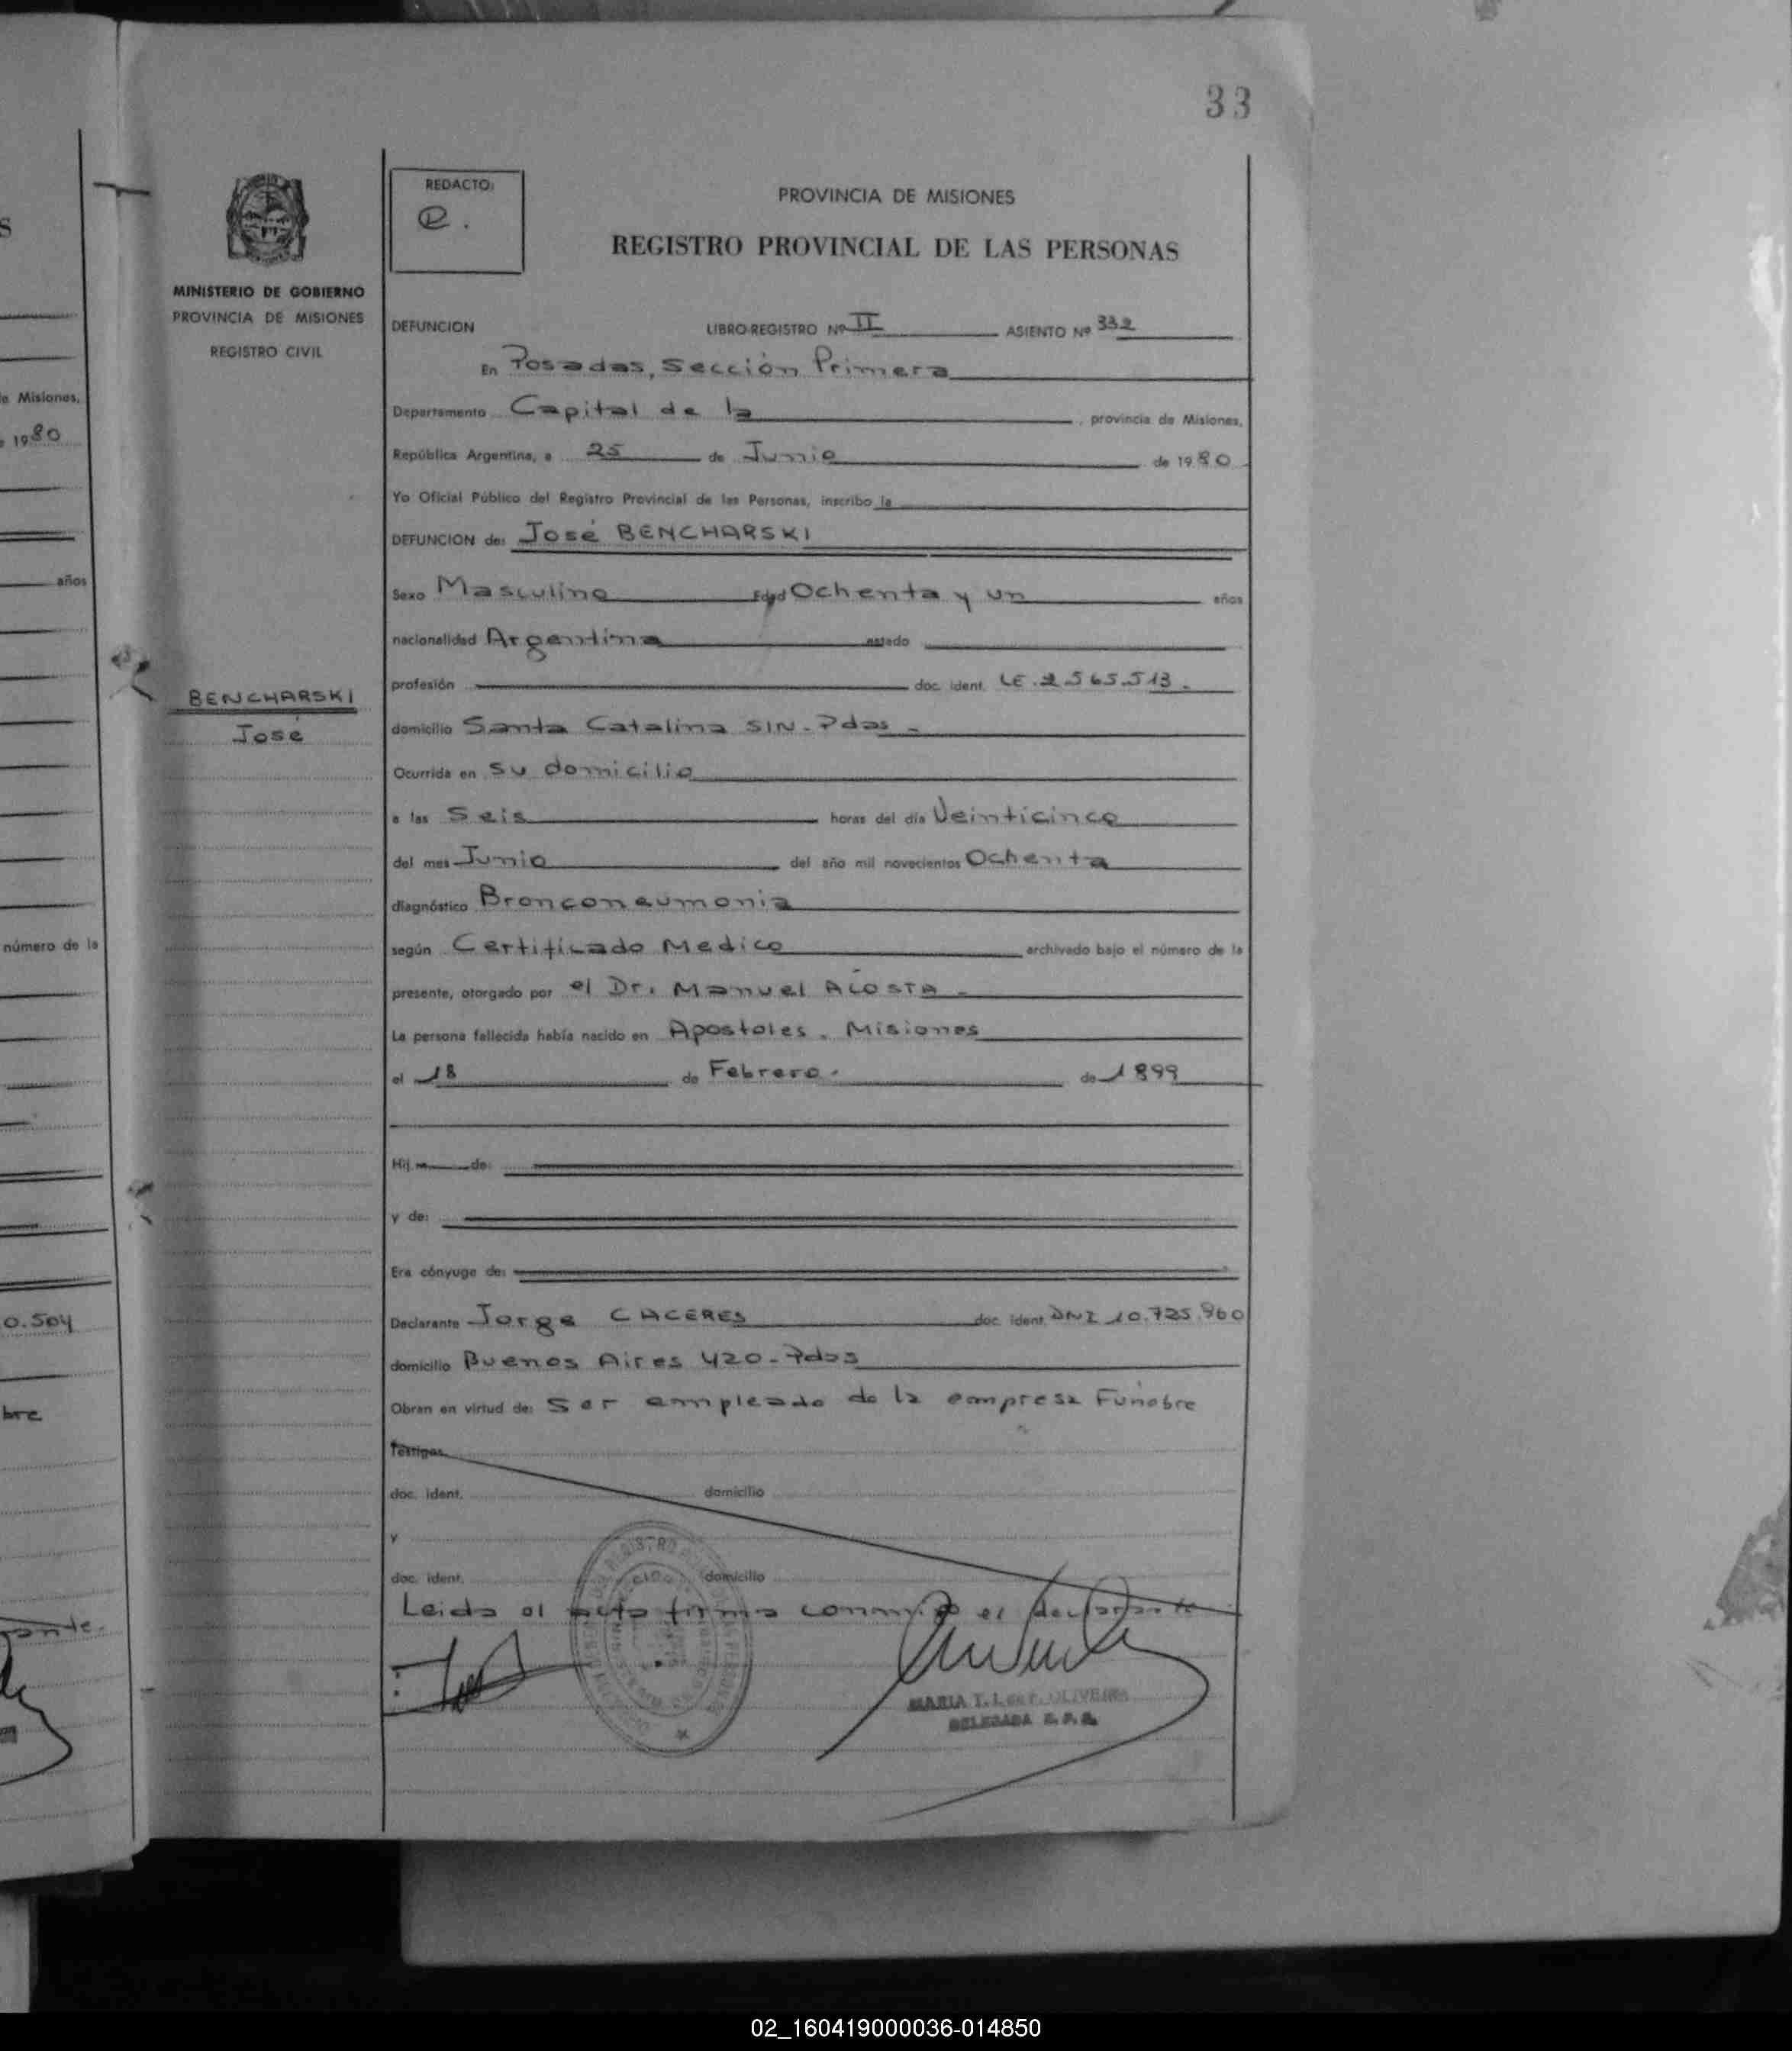 33
S
e Misiones,
e 1980
años
número de la
0.504
bre
MINISTERIO DE GOBIERNO
PROVINCIA DE MISIONES
REGISTRO CIVIL
BENCHARSKI
José
REDACTO:
PROVINCIA DE MISIONES
REGISTRO PROVINCIAL DE LAS PERSONAS
DEFUNCION LIBRO-REGISTRO Nº II ASIENTO Nº 332
En Posadas, Sección Primera
Departamento Capital de la, provincia de Misiones,
República Argentina, a 25 de Junio de 1980
Yo Oficial Público del Registro Provincial de las Personas, inscribo la
DEFUNCION de: José BENCHARSKI
Sexo Masculino Edad Ochenta y un años
nacionalidad Argentina estado
profesión doc. ident. LE. 2.565.513.
domicilio Santa Catalina S/N - Pdas -
Ocurrida en su domicilio
a las Seis horas del día Veinticinco
del mes Junio del año mil novecientos Ochenta
diagnóstico Bronconeumonia
según Certificado Medico archivado bajo el número de la
presente, otorgado por el Dr. Manuel ACOSTA -
La persona fallecida había nacido en Apostoles. Misiones
el 18 de Febrero. de 1899
Hij de:
y de:
Era cónyuge de:
Declarante Jorge CACERES doc. ident. DNI 10.725.960
domicilio Buenos Aires 420 - Pdas
Obran en virtud de: Ser empleado de la empresa Funebre
Testigos
doc. ident. domicilio
y
doc. ident. domicilio
Leida el acta firma conmigo el declarante
MARIA T. I. de F. OLIVEIRA
DELEGADA R. P. P.
02_160419000036-014850